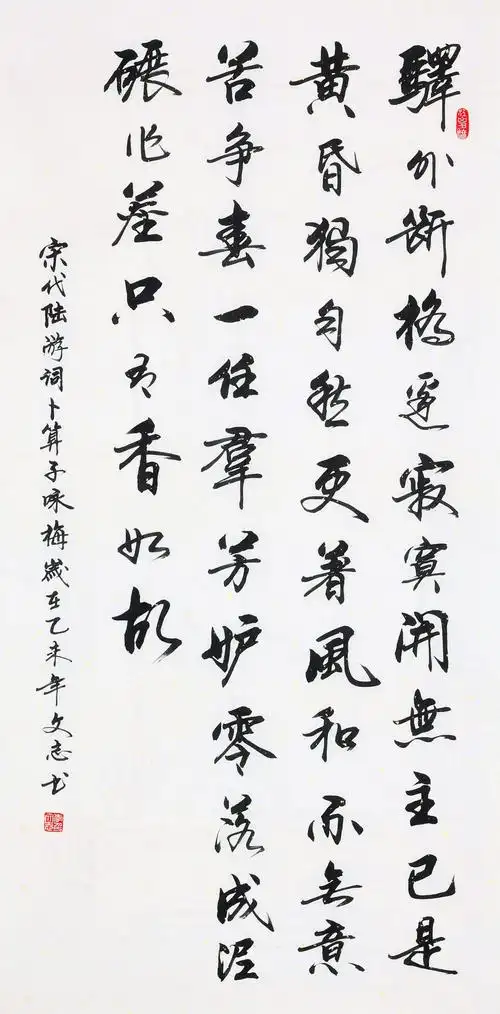 驛外斷橋邊寂寞開無主已是
黄昏獨自愁更著風和雨無意
苦争春一任羣芳妒零落成泥
碾作塵只有香如故
宋代陆游词卜算子咏梅歲在乙未年文志书